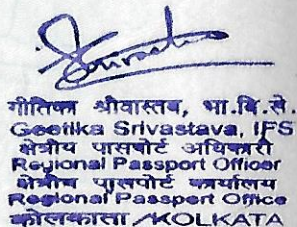 गीतिका श्रीवास्तव, भा.वि.से.
Geetika Srivastava, IFS
क्षेत्रीय पासपोर्ट अधिकारी
Regional Passport Officer
क्षेत्रीय पासपोर्ट कार्यालय
Regional Passport Office
कोलकाता / KOLKATA